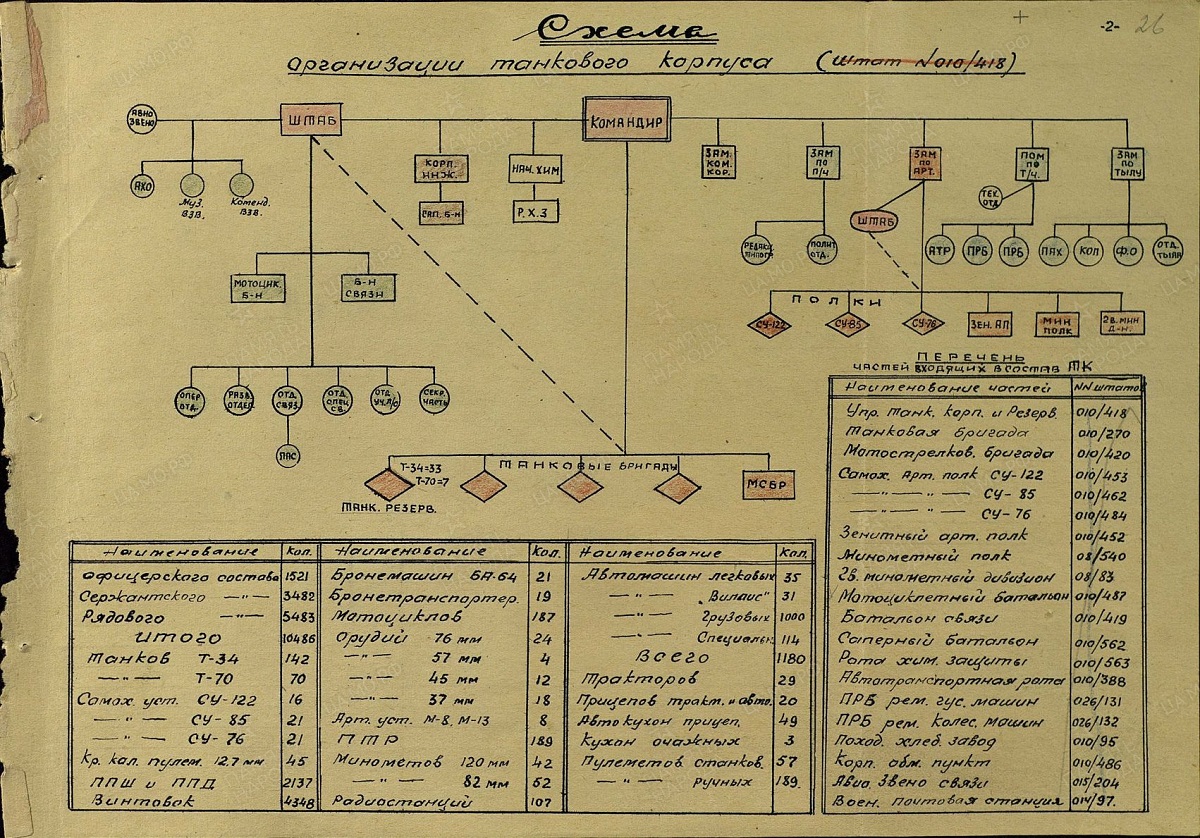 -2- 26
Схема
организации танкового корпуса (Штат №010/418)
АВИО ЗВЕНО
ШТАБ
КОМАНДИР
АХО
Муз. ВЗВ.
Коменд. ВЗВ.
КОРП. ИНЖ.
САП. Б-Н
НАЧ. ХИМ
Р.Х.З
ЗАМ. КОМ. КОР.
ЗАМ ПО П/Ч
ЗАМ ПО АРТ.
ПОМ ПО Т/Ч.
ЗАМ ПО ТЫЛУ
ТЕХ. ОТД
ШТАБ
ПОЛИТ ОТД.
АТР
ПРБ
ПРБ
ПАХ
КОП
Ф.О
ОТД. ТЫЛА
МОТОЦИК. Б-Н
Б-Н СВЯЗИ
ПОЛКИ
СУ-122
СУ-85
СУ-76
ЗЕН. АП
МИН ПОЛК
ГВ. МИН Д-Н.
ОПЕР ОТД.
РАЗВ. ОТДЕЛ
ОТД. СВЯЗ.
ОТД СПЕЦ СВ.
ОТД УЧ. Л/С
СЕКР. ЧАСТЬ
ПАС
Т-34=33
Т-70=7
ТАНКОВЫЕ БРИГАДЫ
МСБР
ТАНК. РЕЗЕРВ.
ПЕРЕЧЕНЬ
ЧАСТЕЙ ВХОДЯЩИХ В СОСТАВ ТК
Наименование частей NN штатов
Упр. танк. корп. и Резерв. 010/418
Танковая бригада 010/270
Мотострелков. бригада 010/420
Самох. Арт. полк СУ-122 010/453
—"—"— СУ-85 010/462
—"—"— СУ-76 010/484
Зенитный арт. полк 010/452
Минометный полк 08/540
Гв. минометный дивизион 08/83
Мотоциклетный батальон 010/487
Батальон связи 010/419
Саперный батальон 010/562
Рота хим. защиты 010/563
Автотранспортная рота 010/388
ПРБ рем. гус. машин 026/131
ПРБ рем. колес. машин 026/132
Поход. хлеб. завод 010/95
Корп. обм. пункт 010/486
Авиа. Звено связи 015/204
Воен. почтовая станция 014/97.
Наименование Кол.
Офицерского состава 1521
Сержантского —"— 3482
Рядового —"— 5483
ИТОГО 10486
Танков Т-34 142
—"— Т-70 70
Самох. уст. СУ-122 16
—"— СУ-85 21
—"— СУ-76 21
Кр. кал. пулем. 12.7 мм 45
ППШ и ППД 2137
Винтовок 4348
Наименование Кол.
Бронемашин БА-64 21
Бронетранспортер. 19
Мотоциклов 187
Орудий 76 мм 24
—"— 57 мм 4
—"— 45 мм 12
—"— 37 мм 18
Арт. уст. М-8, М-13 8
ПТР 189
Минометов 120 мм 42
—"— 82 мм 52
Радиостанций 107
Наименование Кол.
Автомашин легковых 35
—"— "Виллис" 31
—"— Грузовых 1000
—"— Специальн. 114
Всего 1180
Тракторов 29
Прицепов тракт. и авто. 20
Автокухон прицеп. 49
Кухон очажных 3
Пулеметов станков. 57
—"— ручных 189.